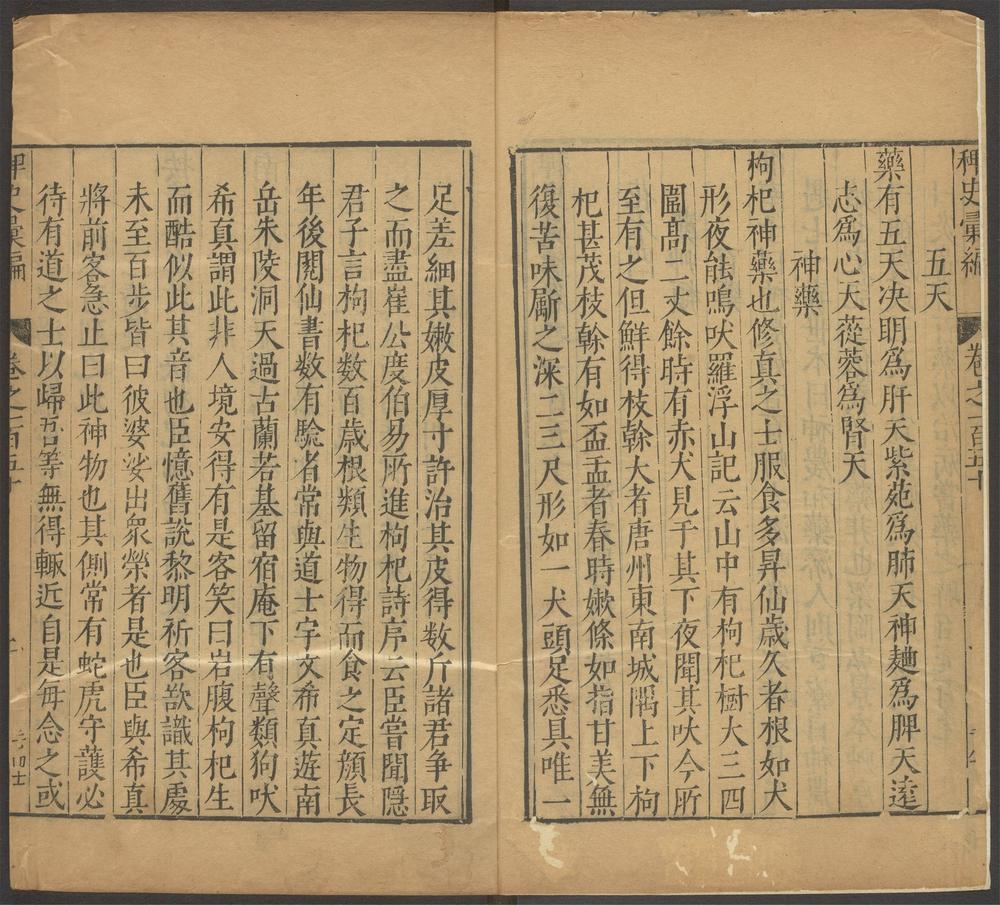 稗史彙編 卷之一百五十
五天
藥有五天决明爲肝天紫菀爲肺天神麯爲脾天遠
志爲心天蓯蓉爲腎天
神藥
枸杞神藥也修真之士服食多昇仙歲久者根如犬
形夜能鳴吠羅浮山記云山中有枸杞樹大三四
圍高二丈餘時有赤犬見于其下夜聞其吠今所
至有之但鮮得枝榦大者唐州東南城隅上下枸
杞甚茂枝榦有如盃盂者春時嫩條如指甘美無
復苦味斸之深二三尺形如一犬頭足悉具唯一
足差細其嫩皮厚寸許治其皮得数斤諸君争取
之而盡崔公度伯易所進枸杞詩序云臣嘗聞隱
君子言枸杞数百歲根類生物得而食之定顔長
年後閱仙書数有騐者常與道士宇文希真遊南
岳朱陵洞天過古蘭若基留宿庵下有聲類狗吠
希真謂此非人境安得有是客笑曰岩腹枸杞生
而酷似此其音也臣憶舊說黎明祈客欲識其處
未至百步皆曰彼婆娑出衆榮者是也臣與希真
將前客急止曰此神物也其側常有蛇虎守護必
待有道之士以歸吾等無得輙近自是每念之或
稗史彙編 卷之一百五十